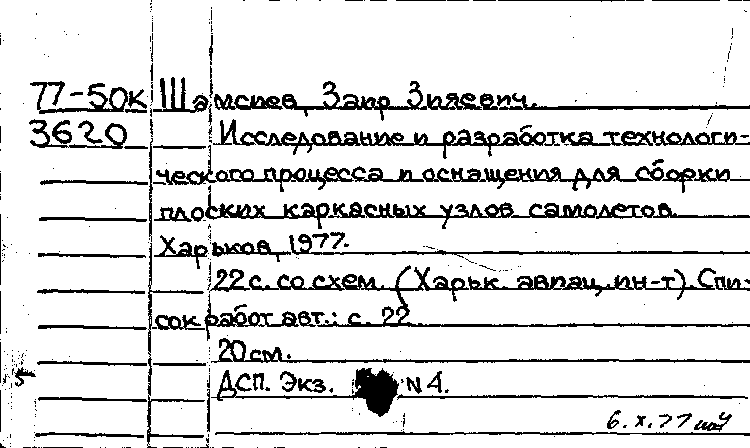 77-50к Шамсиев, Заир Зияевич.
3620 Исследование и разработка технологи-
ческого процесса и оснащения для сборки
плоских каркасных узлов самолетов.
Харьков, 1977.
22 с. со схем. (Харьк. авиац. ин-т). Спи-
сок работ авт.: с. 22
20 см.
ДСП. Экз. N 4.
6.X.77